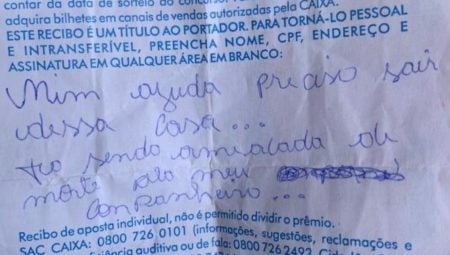 contar da data de sorteio do concurso
adquira bilhetes em canais de vendas autorizadas pela CAIXA.
ESTE RECIBO É UM TÍTULO AO PORTADOR. PARA TORNÁ-LO PESSOAL
E INTRANSFERÍVEL, PREENCHA NOME, CPF, ENDEREÇO E
ASSINATURA EM QUALQUER ÁREA EM BRANCO:
Mim ajuda preciso sair
dessa casa...
to sendo amiaçada de
morte pelo meu
companheiro...
Recibo de aposta individual, não é permitido dividir o prêmio.
SAC CAIXA: 0800 726 0101 (informações, sugestões, reclamações e
auditiva ou de fala: 0800 726 2492